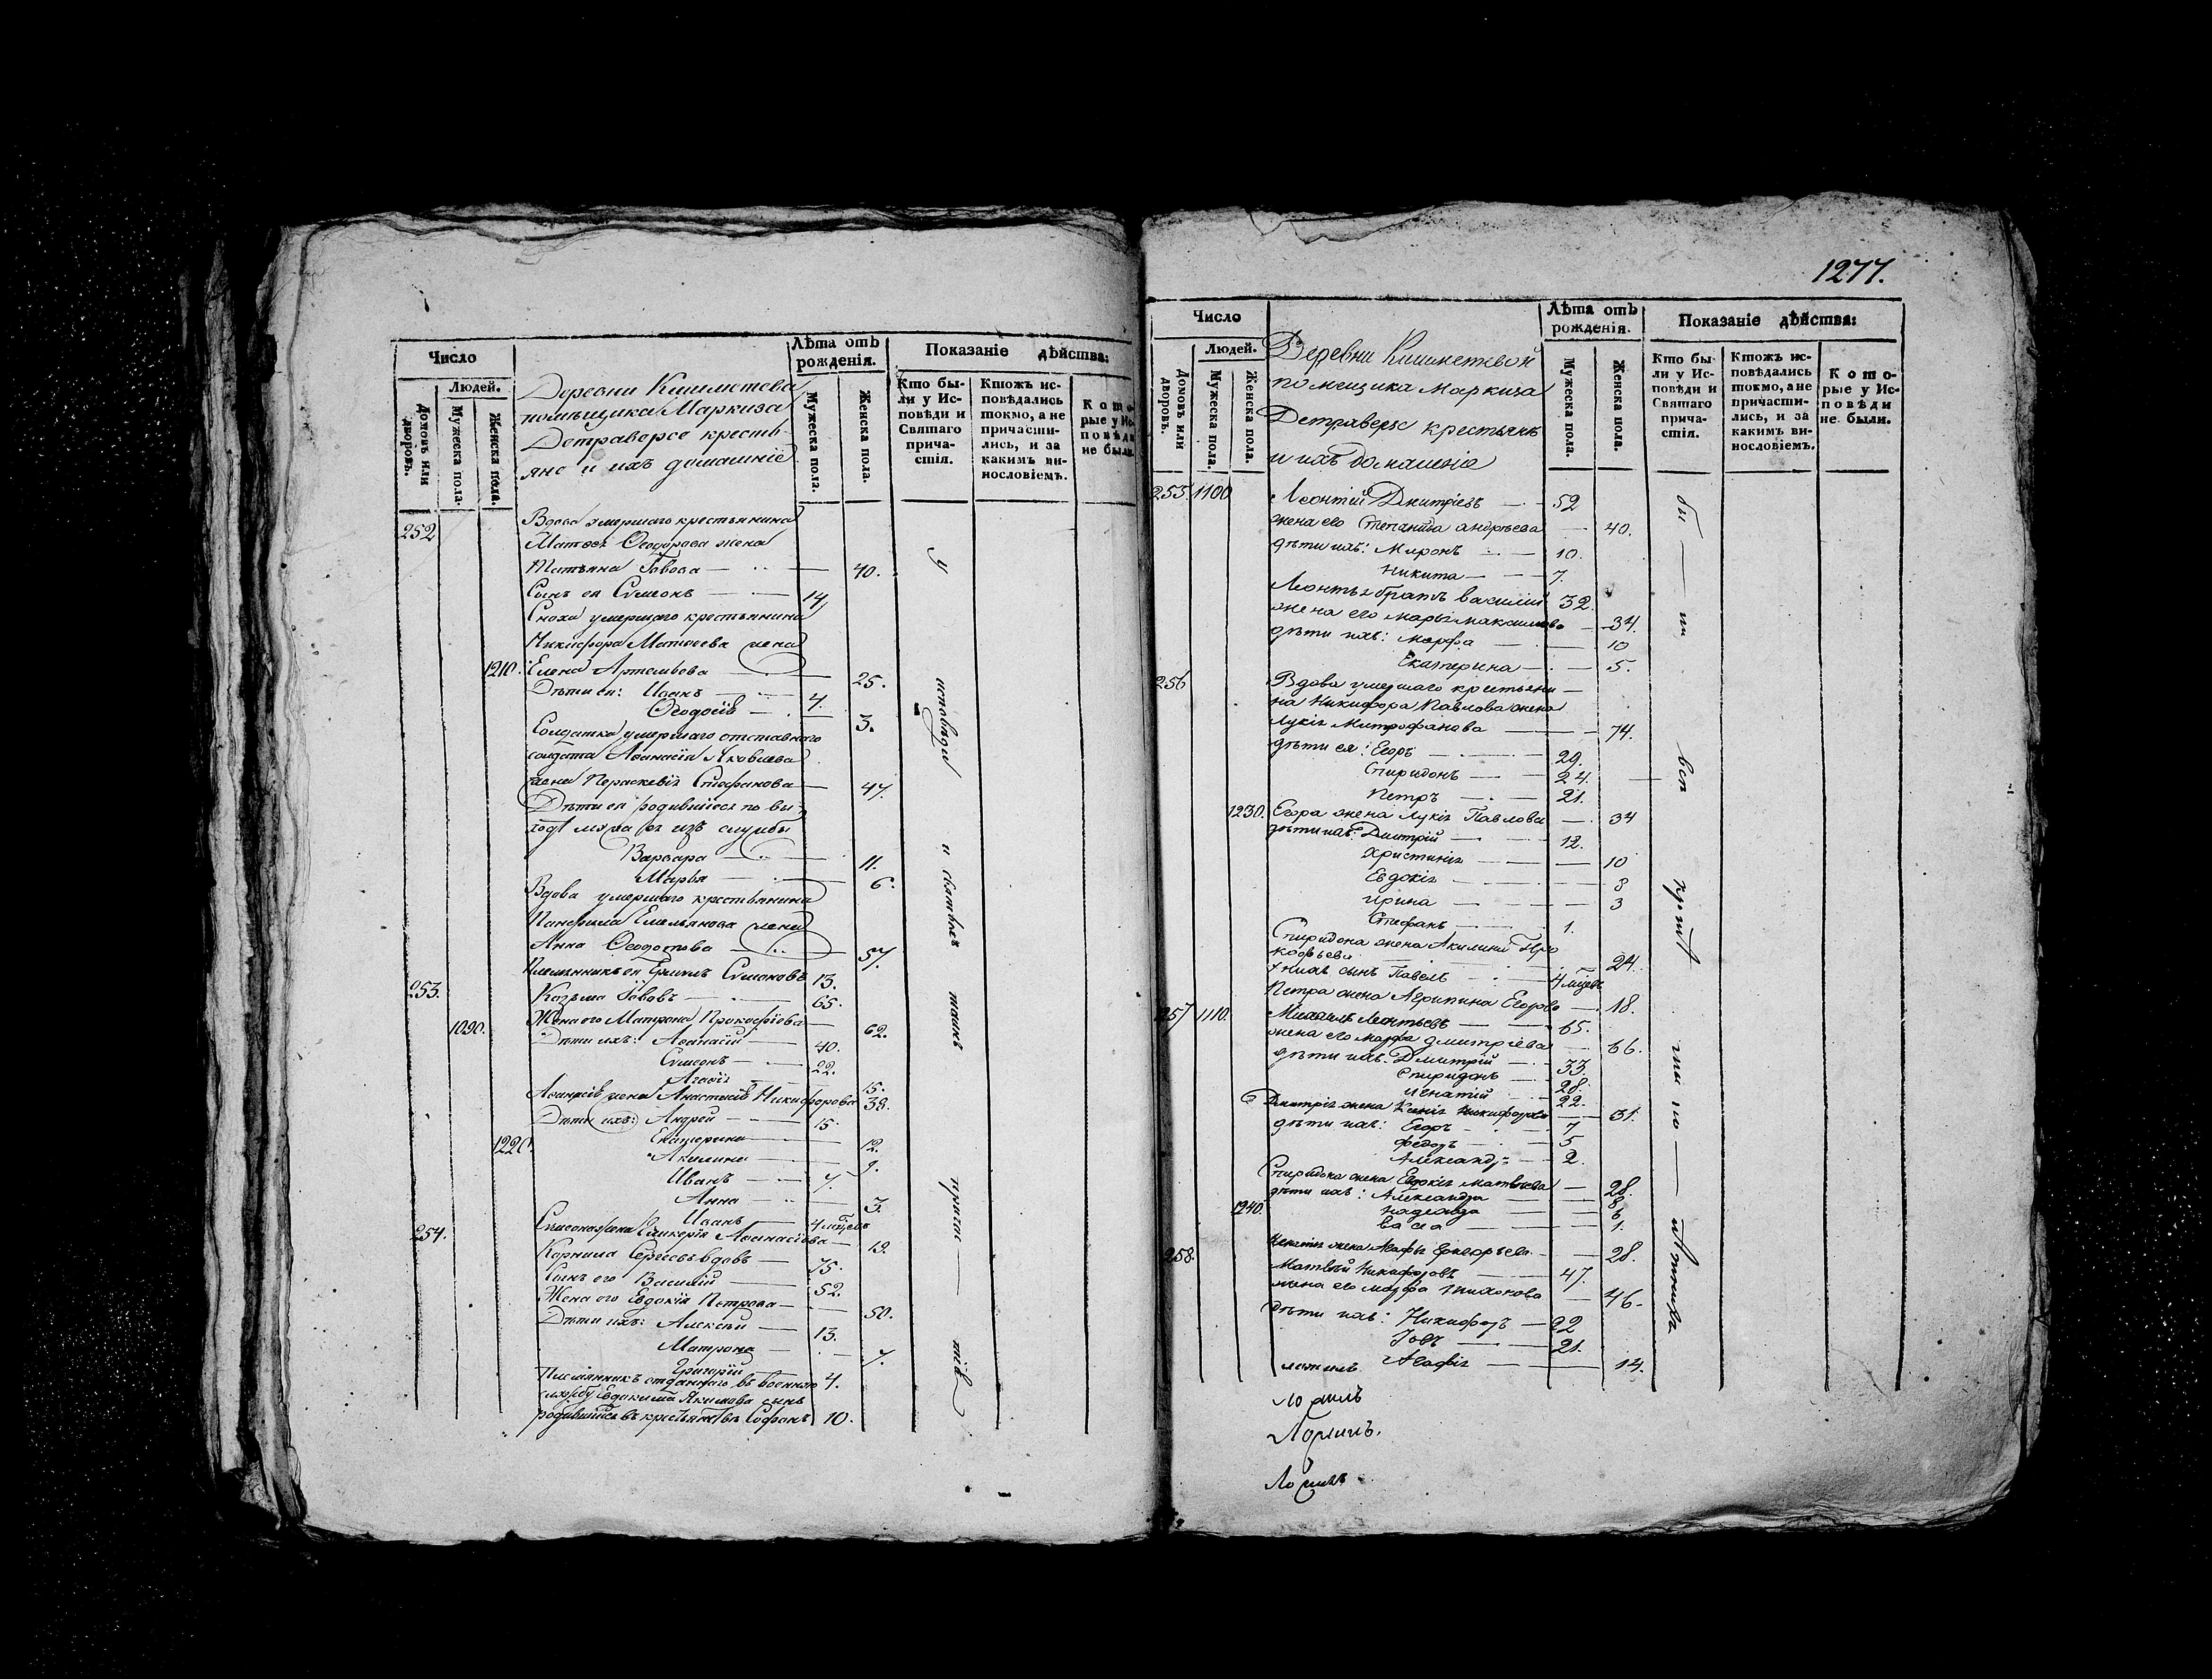 Число
Людей.
Домовъ или дворовъ.
Мужеска пола.
Женска пола.
Лѣта отъ рожденія.
Мужеска пола.
Женска пола.
Показаніе дѣйства:
Кто бы-
ли у Ис-
повѣди и
Святаго
прича-
стія.
Ктожъ ис-
повѣдались
токмо, а не
причасти-
лись, и за
какимъ ви-
нословіемъ.
Кото-
рые у Ис-
повѣди
не были.
Деревни Кишметева
помѣщика Маркиза
Детраверсе кресть-
яне и ихъ домашніе
252 Вдова умершаго крестьянина
Матвея Ѳеодорова жена
Татьяна Іовова — 40.
Сынъ ея Сумеонъ — 14.
Сноха умершаго крестьянина
Никифора Матвеева жена
1210. Елена Артемьева — 25.
Дѣти ея: Иванъ — 4.
Ѳеодосія — 3.
Солдатка умершаго отставнаго
солдата Аѳанасія Яковлева
жена Параскевія Стефанова — 47.
Дѣти ея родившіеся по вы-
ходѣ мужа ея изъ службы
Варвара — 11.
Марья — 6.
Вдова умершаго крестьянина
Панфила Емельянова жена
Анна Ѳеодотова — 57.
Племянникъ ея Сумеоновъ 13.
253. Козьма Іововъ — 65.
Жена его Матрона Прокофіева — 62.
1090. Дѣти ихъ: Аѳанасій — 40.
Сумеонъ — 22.
Агафія — 15.
Аѳанасія жена Анастасія Никифорова 38.
Дѣти ихъ: Андрей — 15.
1220. Екатерина — 12.
Акилина — 9.
Иванъ — 7.
Анна — 3.
Иванъ — 4 мѣсев
Сумеона жена Гликерія Аѳанасіева — 19.
254. Корнила Сергеевъ вдовъ — 75.
Сынъ его Василій — 52.
Жена его Евдокія Петрова — 50.
Дѣти ихъ: Алексѣй — 13.
Матрона — 7.
Григорій 4.
Племянникъ отданнаго въ военную
службу Евдокима Якимова сынъ
родившійся въ крестьянствѣ Софронъ 10.
у исповѣди и святаго таинъ
1277.
Число
Людей.
Домовъ или дворовъ.
Мужеска пола.
Женска пола.
Лѣта отъ рожденія.
Мужеска пола.
Женска пола.
Показаніе дѣйства:
Кто бы-
ли у Ис-
повѣди и
Святаго
прича-
стія.
Ктожъ ис-
повѣдались
токмо, а не
причасти-
лись, и за
какимъ ви-
нословіемъ.
Кото-
рые у Ис-
повѣди
не были.
Деревни Кишметевой
помещика Маркиза
Детраверзе крестьянъ
и ихъ домашніе
255. 1100 Леонтій Дмитріевъ — 52
жена его Степанида андреева — 40.
дѣти ихъ: Миронъ — 10.
Никита — 7.
Леонтья братъ василій 32.
жена его марья максимова — 34.
дѣти ихъ: Марфа — 10
Екатерина — 5.
256 Вдова умершаго крестьяни-
на Никифора Павлова жена
Лукія Митрофанова — 74.
дѣти ея: Егоръ — 29.
Спиридонъ — 24.
Петръ — 21.
1230. Егора жена Лукія Павлова — 34
дѣти ихъ: Дмитрій — 12.
Христинія — 10
Евдокія — 8
Ирина — 3
Стефанъ — 1.
Спиридона жена Акилина Про
кофьева — 24.
у нихъ сынъ Павелъ — 4 мѣсев
Петра жена Агрипина Егорова — 18.
257 1110. Михаилъ Леонтьевъ — 65.
жена его марфа дмитріева — 66.
дѣти ихъ: Дмитрій — 33.
Спиридонъ — 28.
Игнатій — 22.
Дмитрія жена Ксенія Никифорова — 31.
дѣти ихъ: Егоръ — 7
Федоръ — 5
Александръ — 2.
Спиридона жена Евдокія Матвѣева — 28.
дѣти ихъ: Александра — 8.
1240. надежда — 6
васса — 1.
Игнатья жена Агафья Григорьева — 28.
258. Матвѣй Никифоровъ — 47.
жена его марфа тихонова — 46.
дѣти ихъ: Никифоръ — 22
Іовъ — 21.
Агафія — 14.